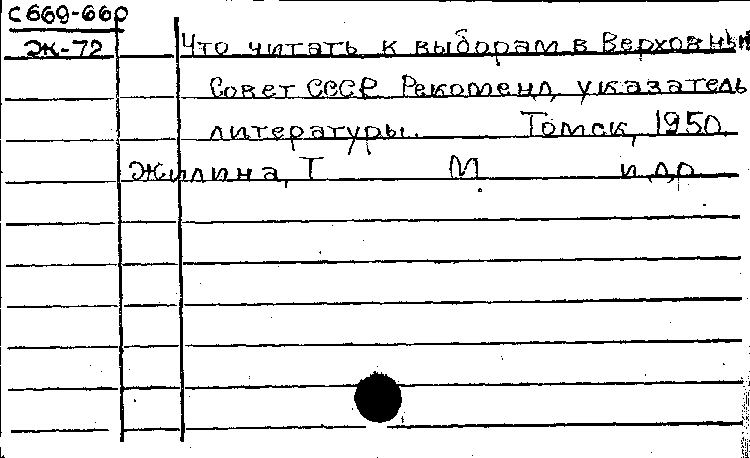 С669-66р
Ж-72
Что читать к выборам в Верховный
Совет СССР Рекоменд. указатель
литературы. Томск, 1950.
Жилина, Т М. и др.